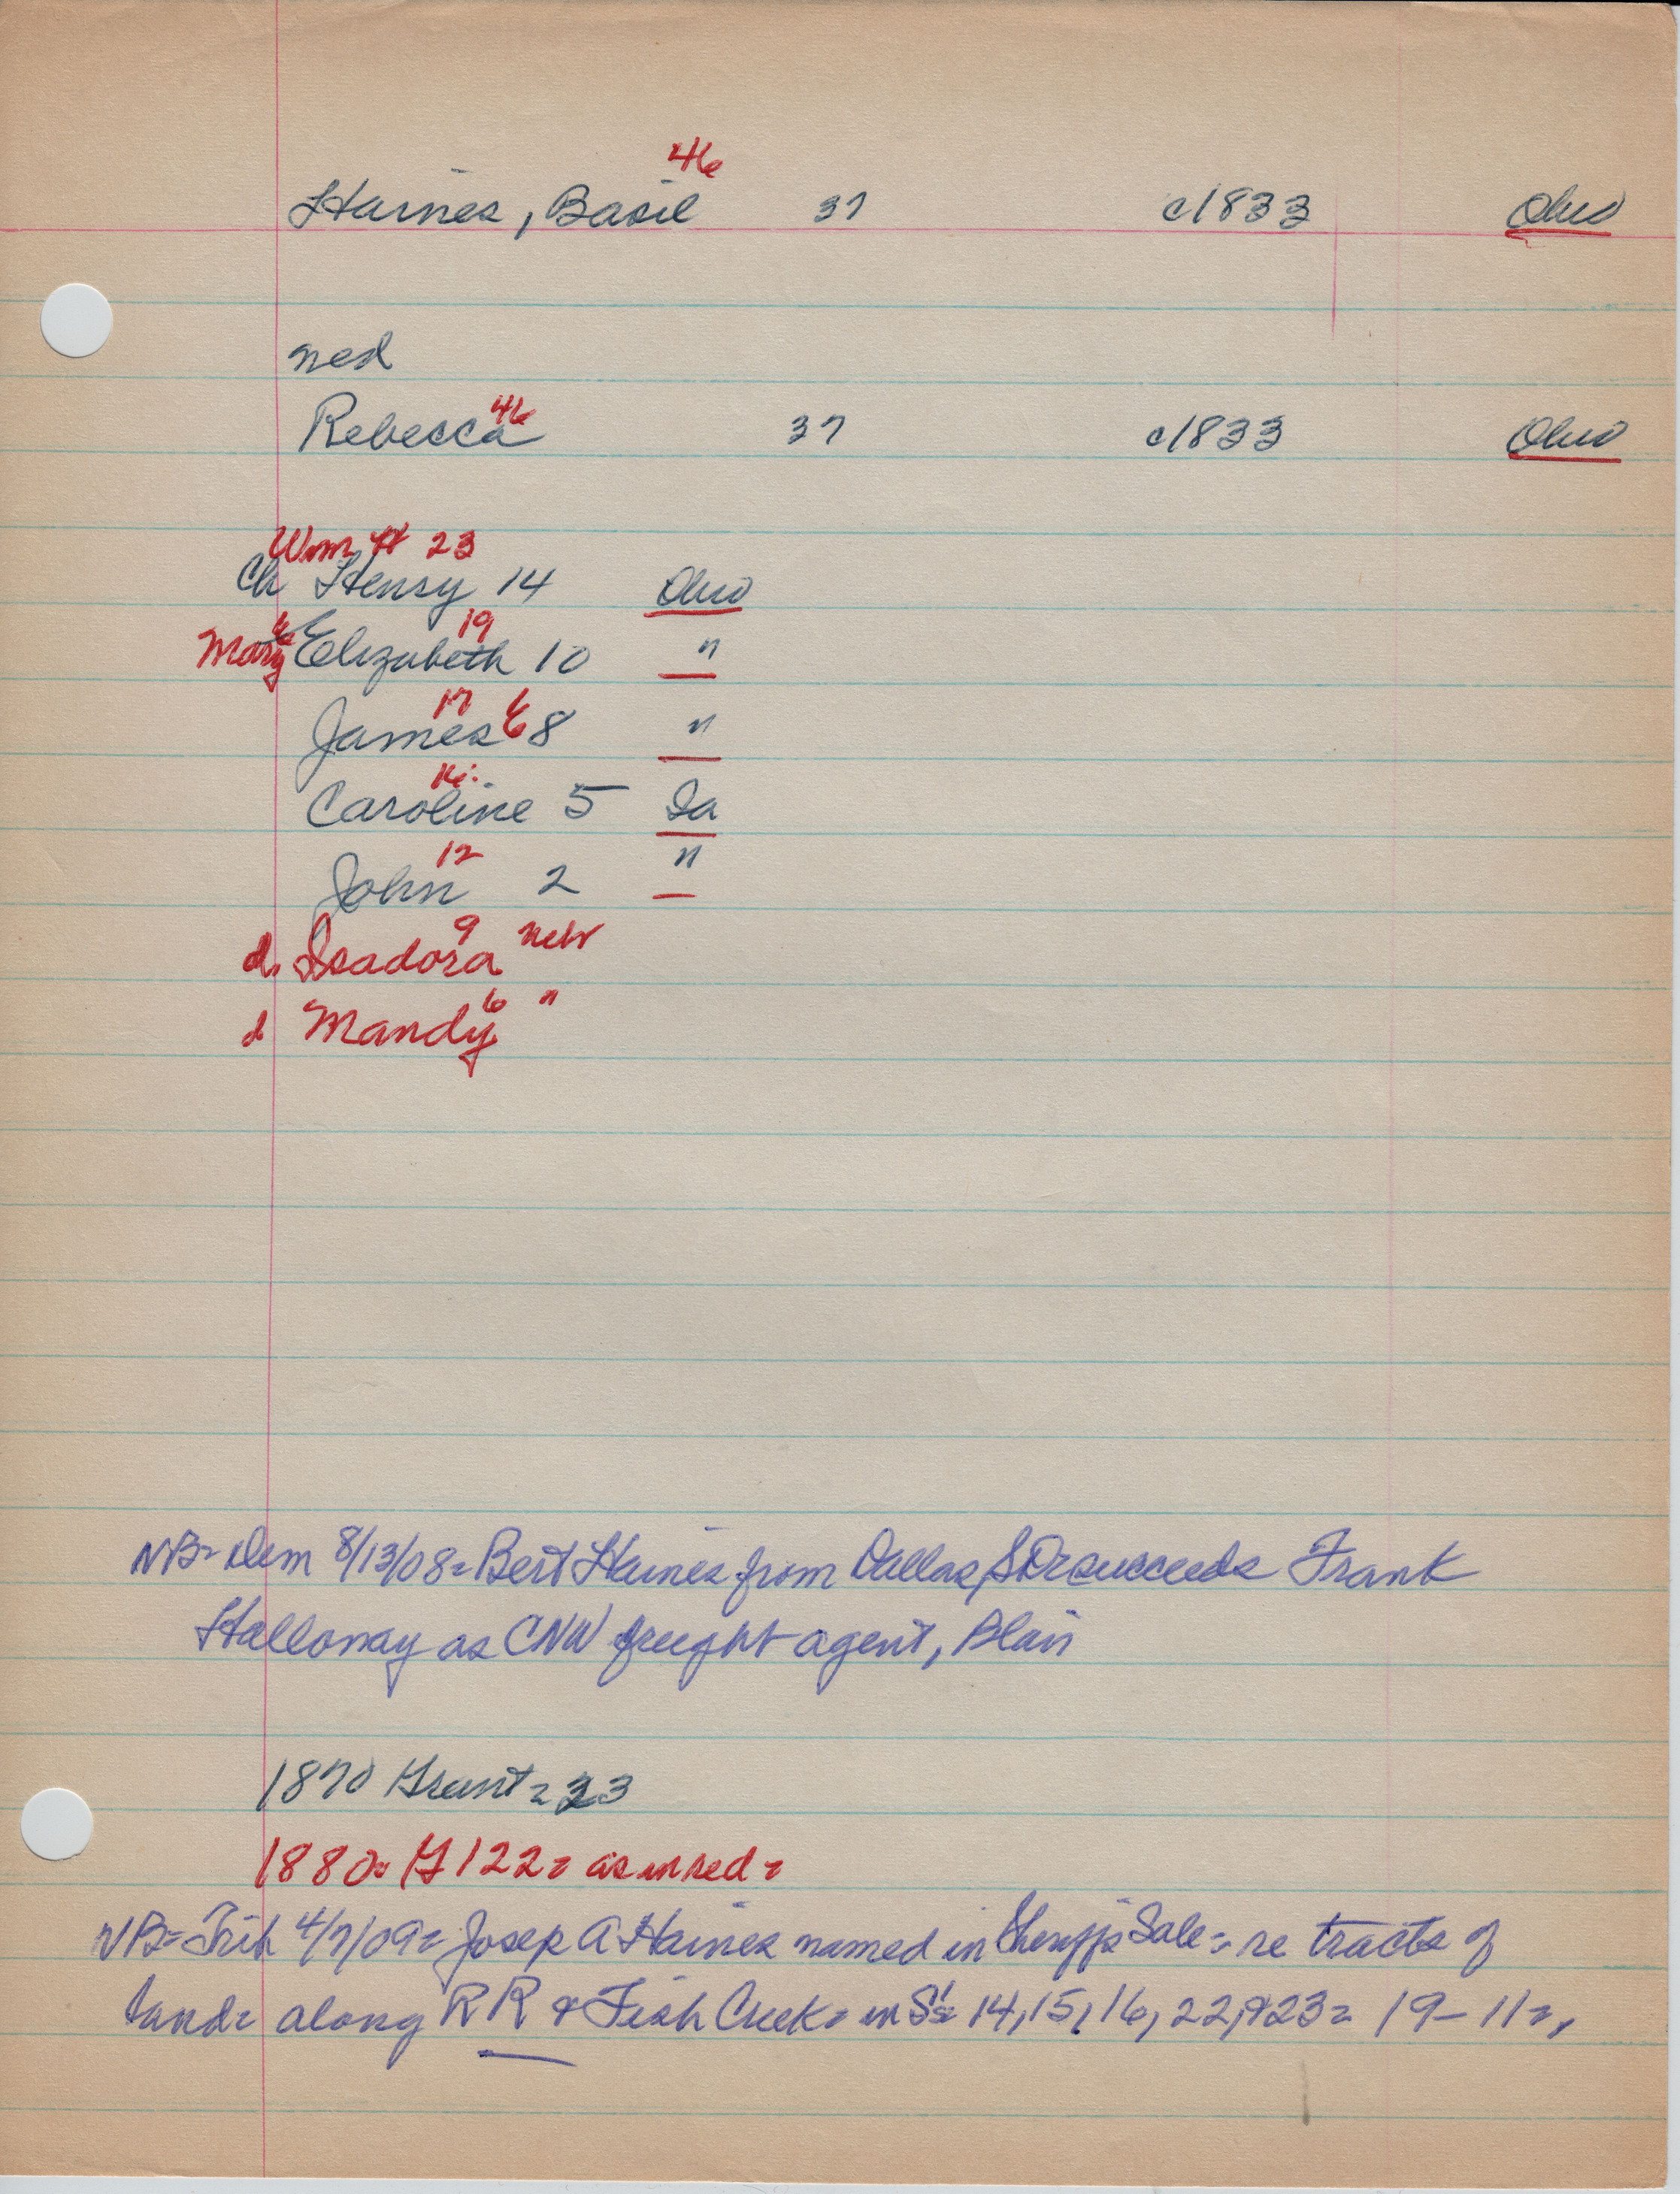 46
Haines, Basil 37 c1833 Ohio
ned
46
Rebecca 37 c1833 Ohio
Wm H 23
Ch Henry 14 Ohio
19
Mary E Elizabeth 10 "
17
James E 8 "
16
Caroline 5 Ia
12
John 2 "
9
d. Isadora nebr
6
d Mandy "
NB= Dem 8/13/08= Bert Haines from Dallas, SD succeeds Frank
Halloway as CNW freight agent, Blair
1870 Grant = 23
1880= G 122= as in red =
NB= Trib 4/7/09= Josep A Haines named in Sheriff's Sale = re tracts of
land= along RR & Fish Creek= in S's= 14, 15, 16, 22, & 23= 19-11=,